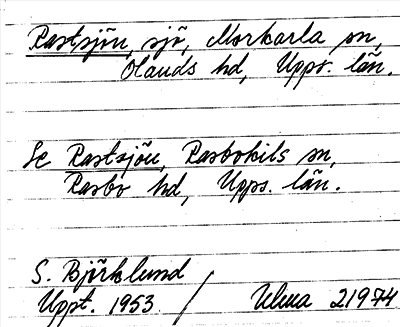 Rastsjön, sjö, Morkarla sn,
Olands hd, Upps. län.
Se Rastsjön, Rasbokils sn,
Rasbo hd, Upps. län.
S. Björklund
Uppt. 1953. / Ulma 21974